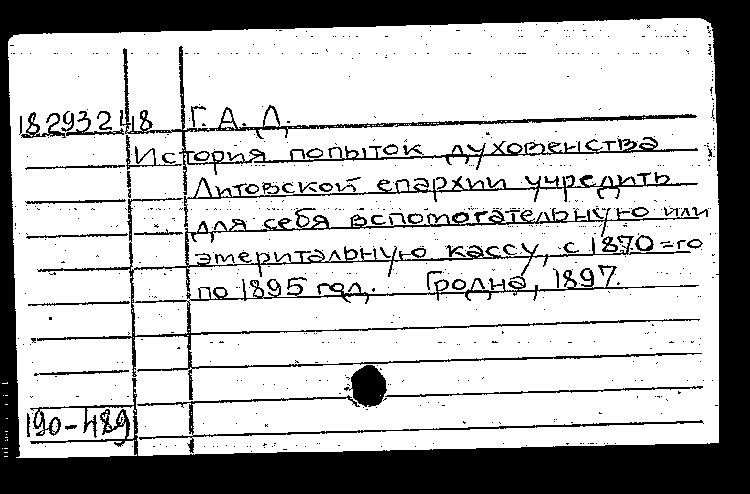 18293248 Г. А. Л.
История попыток духовенства
Литовской епархии учредить
для себя вспомогательную или
эмеритальную кассу, с 1870=го
по 1895 год. Гродна, 1897.
190-489